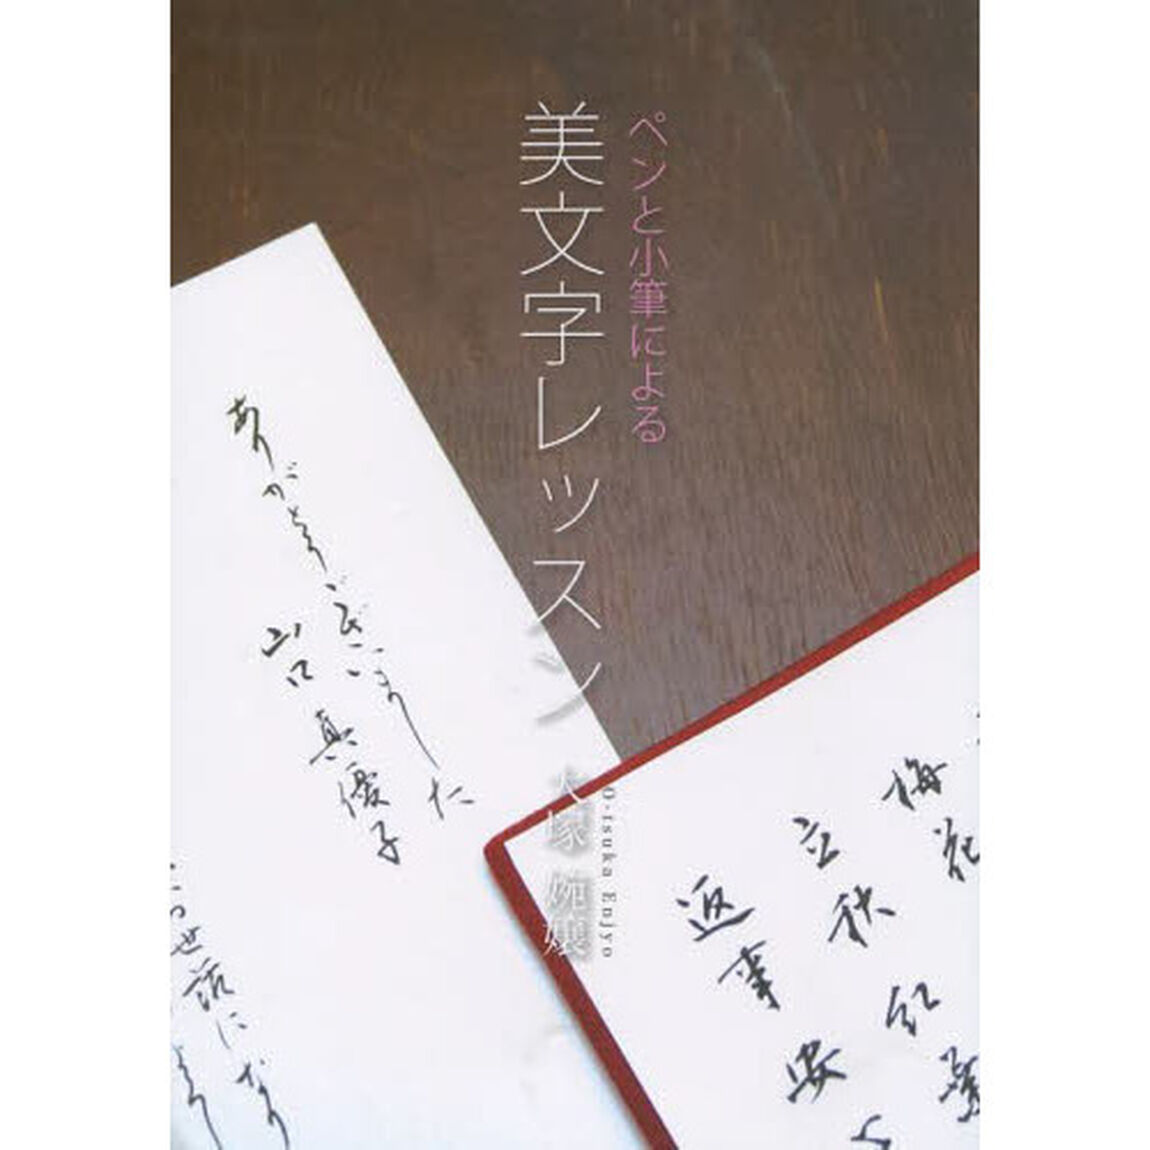 ペンと小筆による
美文字レッスン
大塚 婉嬢
O-tsuka Enjyo
ありがとうございました
山口 真優子
世話になり
梅花
立秋 紅葉
返事 安